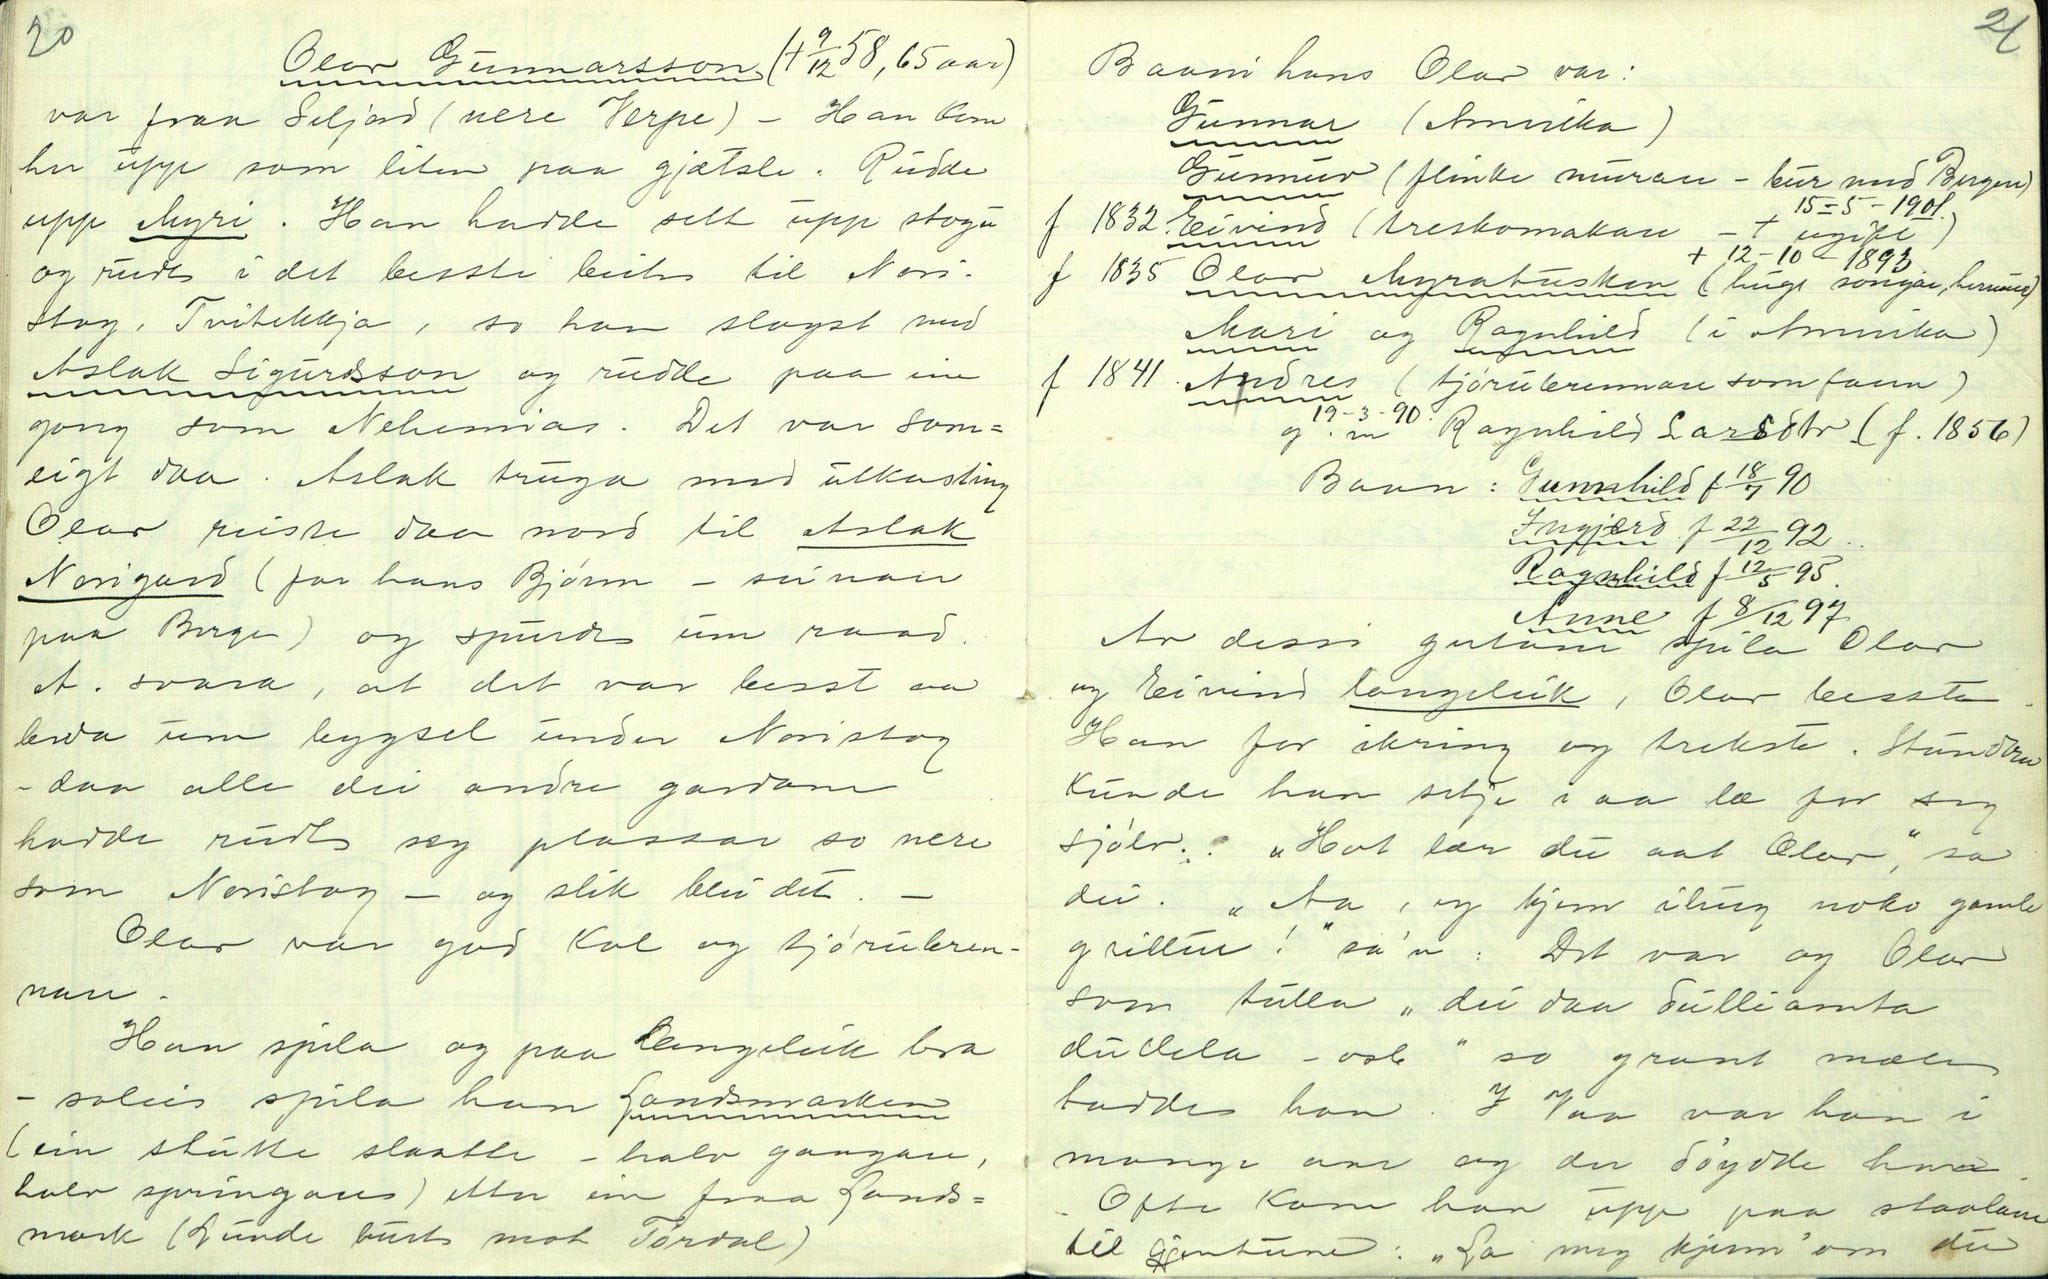 20
Olav Gunnarsson (+ 9/12 58, 65 aar)
var fraa Seljord (nere Verpe) – Han kom
her uppe som liten paa gjætsle. Rudde
upp Myri. Han hadde sett upp stogu
og rudt i det beste beite til Nori-
stog, Tvitekkja, so han slogst med
Aslak Sigurdsson og rudde paa ein
gong som Nehemias. Det var som=
eigt daa. Aslak truga med utkasting
Olav reiste daa nord til Aslak
Norigard (far hans Bjørn – seinare
paa Berge) og spurde um raad.
A. svara, at det var besst aa
beda um bygsel under Noristog
– daa alle dei andre gardane
hadde rudt seg plassar so nere
som Noristog – og slik blei det. –
Olav var god kol og tjørubren-
nare.
Han spela og paa langeleik bra
– soleis spela han Landsmarken
(ein stutte slaatte – halv gangare,
halv springar) etter ein fraa Lands=
mark (Lunde burt mot Tørdal)
21
Baani hans Olav var:
Gunnar (Amerika)
Gunnuv (flinke murare – bur med Bergen)
15-5-1901.
f 1832. Eivind (treskomakare – + ugift)
+ 12-10-1893
f 1835 Olav Myratusken (huge songar, herume)
Mari og Ragnhild (i Amerika)
f 1841. Andres (tjørubrennare som faren)
19-3-90.
g. m Ragnhild Larsdtr (f. 1856)
Baan: Gunnhild f 18/7 90
Ingjerd f 22/12 92.
Ragnhild f 12/5 95.
Anne f 8/12 97
Av desse gutane spela Olav
og Eivind langeleik, Olav besste.
Han for ikring og trekste. Stundom
kunde han setje i aa læ for seg
sjølv. "Hot lær du aat Olav," sa
dei. "Aa, eg kjem ihug noko gamle
grillur!" sa'n. Det var og Olav
som tulla "dei daa dulliamta
dudela – osb" so grant mæle
hadde han. I Vaa var han i
mange aar og der døydde han
– Ofte kom han upp paa stoolane
til gjentune: "La meg kjem' om du